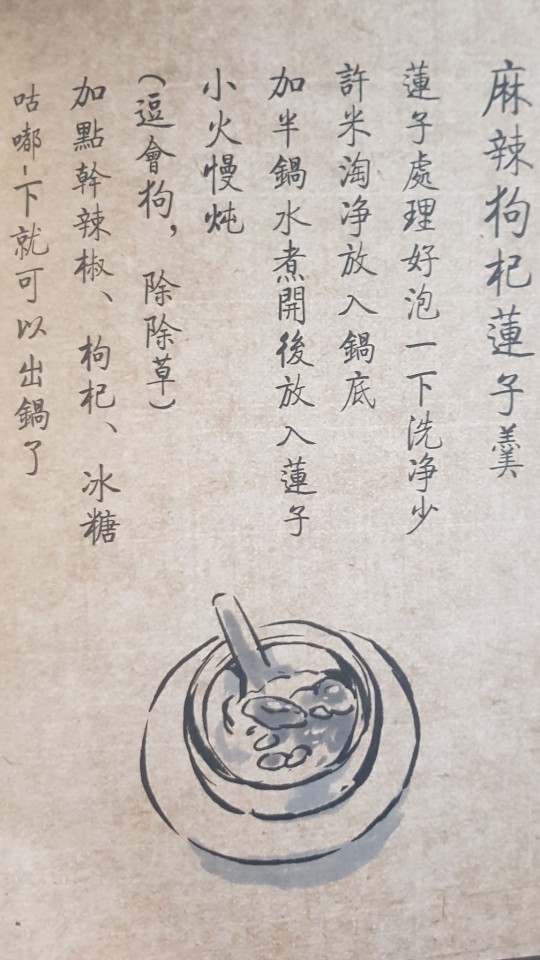 麻辣枸杞蓮子羹
蓮子處理好泡一下洗净少
許米淘净放入鍋底
加半鍋水煮開後放入蓮子
小火慢炖
（逗會狗，除除草）
加點幹辣椒、枸杞、冰糖
咕嘟一下就可以出鍋了